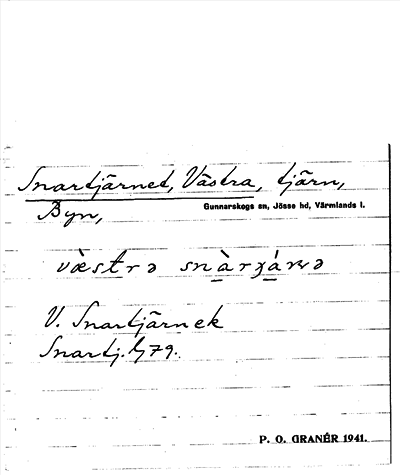 Snartjärnet, Västra, tjärn,
Gunnarskogs sn, Jösse hd, Värmlands l.
Byn,
væstrə
V. Snartjärnek
Snartj. 1/79.
P. O. GRANÉR 1941.